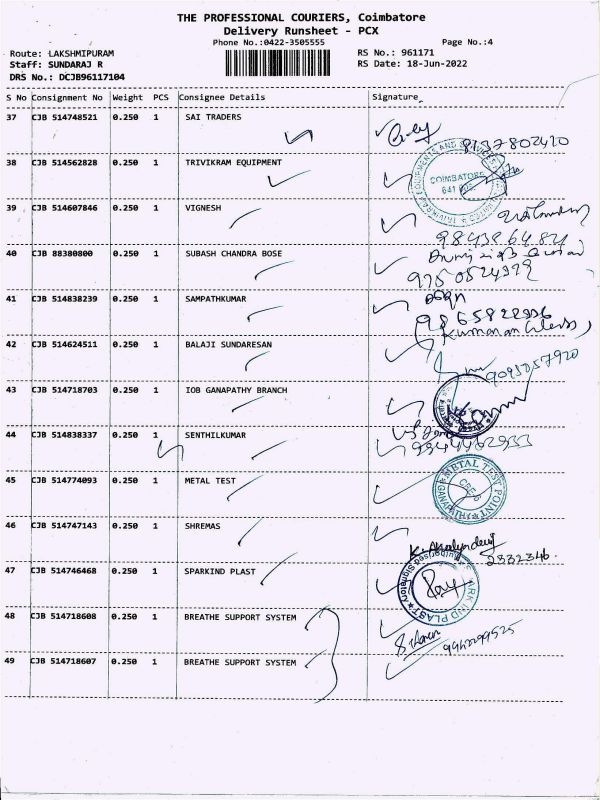 THE PROFESSIONAL COURIERS, Coimbatore
Delivery Runsheet - PCX
Phone No.:0422-3505555
Page No.:4
Route: LAKSHMIPURAM
RS No.: 961171
Staff: SUNDARAJ R
RS Date: 18-Jun-2022
DRS No.: DCJB96117104
S No Consignment No Weight PCS Consignee Details Signature
37 CJB 514748521 0.250 1 SAI TRADERS
8137802420
38 CJB 514562828 0.250 1 TRIVIKRAM EQUIPMENT
COIMBATORE
39 CJB 514607846 0.250 1 VIGNESH
40 CJB 88380800 0.250 1 SUBASH CHANDRA BOSE
41 CJB 514838239 0.250 1 SAMPATHKUMAR
42 CJB 514624511 0.250 1 BALAJI SUNDARESAN
43 CJB 514718703 0.250 1 IOB GANAPATHY BRANCH
44 CJB 514838337 0.250 1 SENTHILKUMAR
45 CJB 514774093 0.250 1 METAL TEST
METAL TEST POINT
46 CJB 514747143 0.250 1 SHREMAS
2332346
47 CJB 514746468 0.250 1 SPARKIND PLAST
48 CJB 514718608 0.250 1 BREATHE SUPPORT SYSTEM
49 CJB 514718607 0.250 1 BREATHE SUPPORT SYSTEM